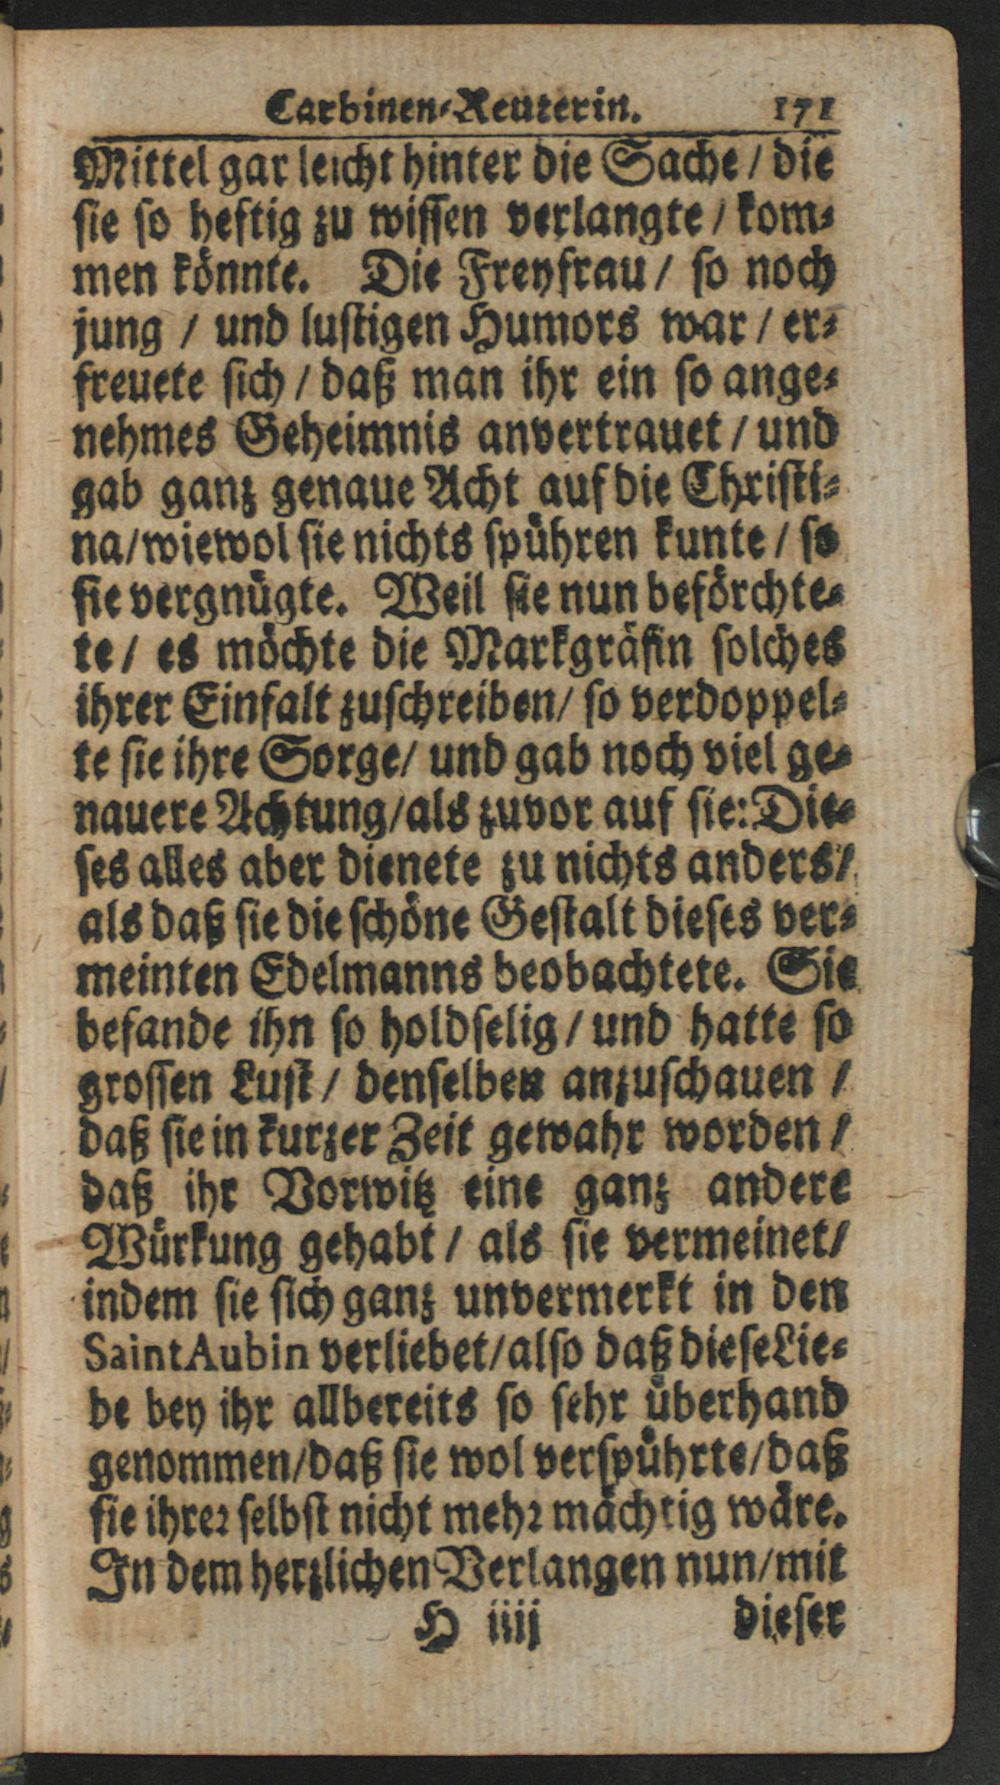 Carbinen-Reuterin. 171
Mittel gar leicht hinter die Sache / die
sie so heftig zu wissen verlangte / kom-
men könnte. Die Freyfrau / so noch
jung / und lustigen Humors war / er-
freuete sich / daß man ihr ein so ange-
nehmes Geheimnis anvertrauet / und
gab ganz genaue Acht auf die Christi-
na/wiewol sie nichts spühren kunte / so
sie vergnügte. Weil sie nun beförchte-
te / es möchte die Markgräfin solches
ihrer Einfalt zuschreiben/ so verdoppel-
te sie ihre Sorge/ und gab noch viel ge-
nauere Achtung/als zuvor auf sie: Die-
ses alles aber dienete zu nichts anders/
als daß sie die schöne Gestalt dieses ver-
meinten Edelmanns beobachtete. Sie
befande ihn so holdselig / und hatte so
grossen Lust / denselben anzuschauen /
daß sie in kurzer Zeit gewahr worden /
daß ihr Vorwitz eine ganz andere
Würkung gehabt / als sie vermeinet/
indem sie sich ganz unvermerkt in den
Saint Aubin verliebet/also daß diese Lie-
be bey ihr allbereits so sehr überhand
genommen/daß sie wol verspührte/daß
sie ihrer selbst nicht mehr mächtig wäre.
In dem herzlichen Verlangen nun/mit
H iiij dieser